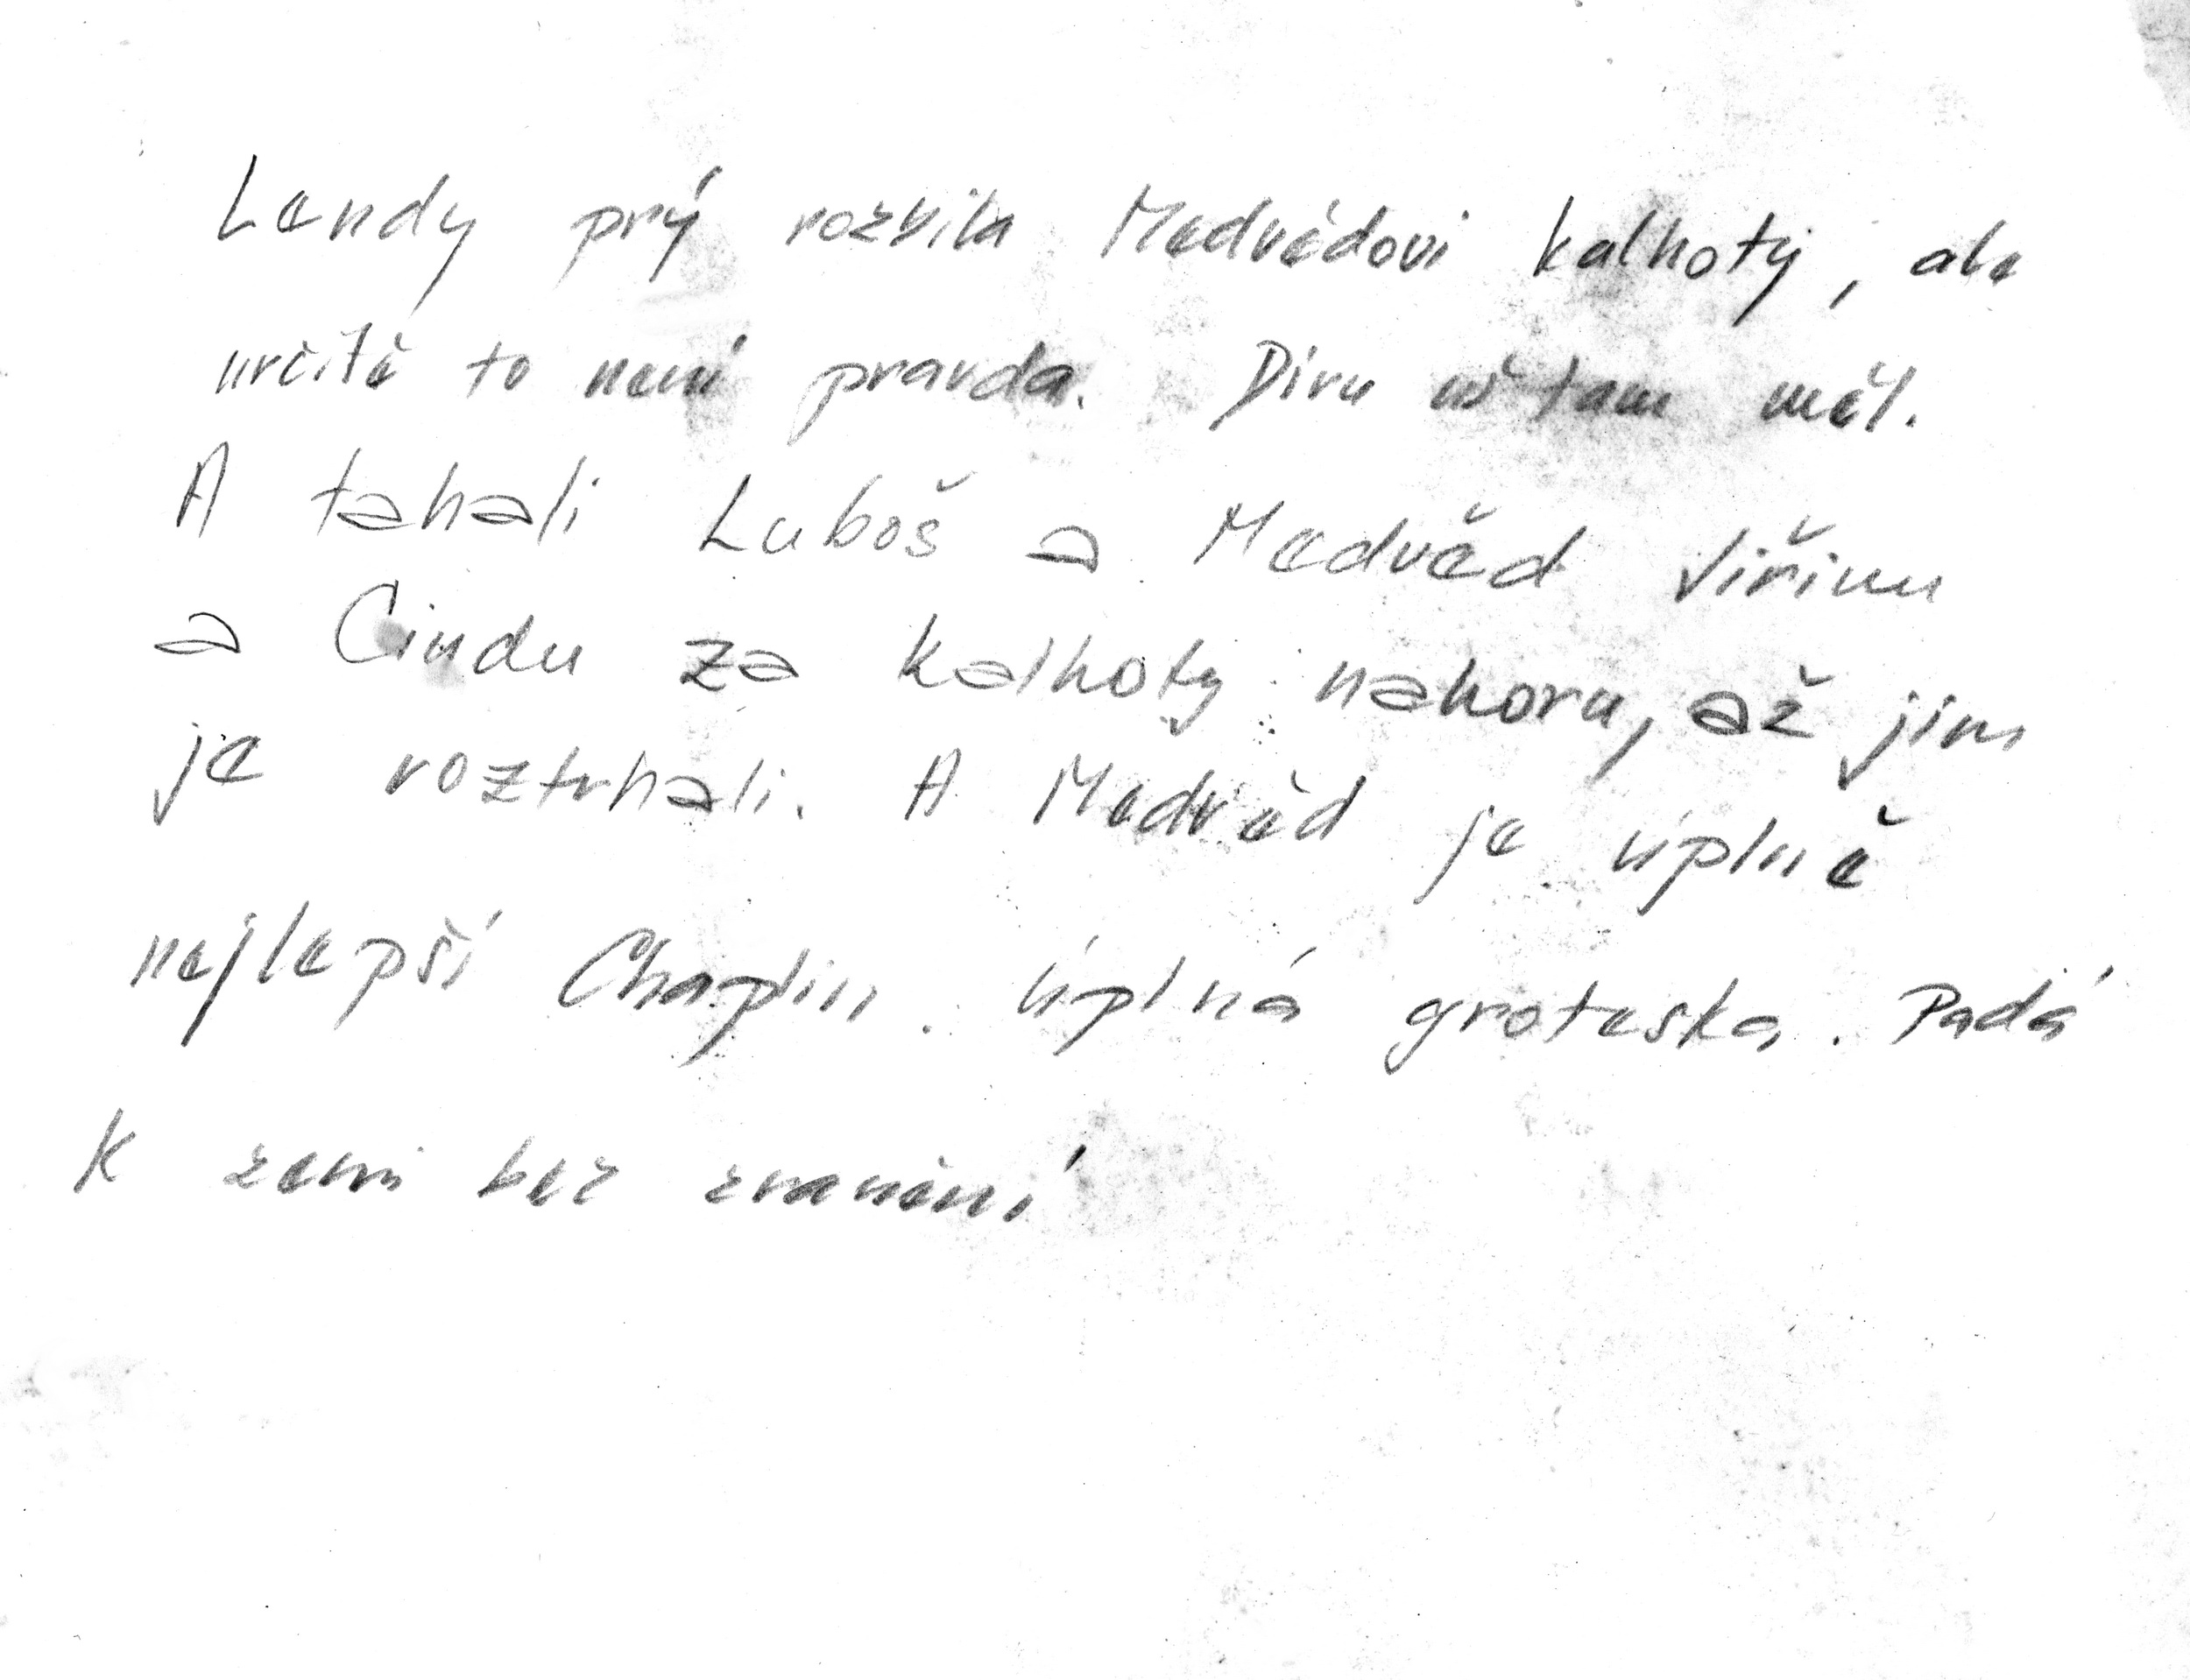 Lendy prý rozbila Medvědovi kalhoty, ale
určitě to není pravda. Díru už tam měl.
A tahali Luboš a Medvěd Jiřinu
a Cindu za kalhoty nahoru, až jim
je roztrhali. A Medvěd je úplně
nejlepší Chaplin. úplná groteska. Padá
k zemi bez zranění